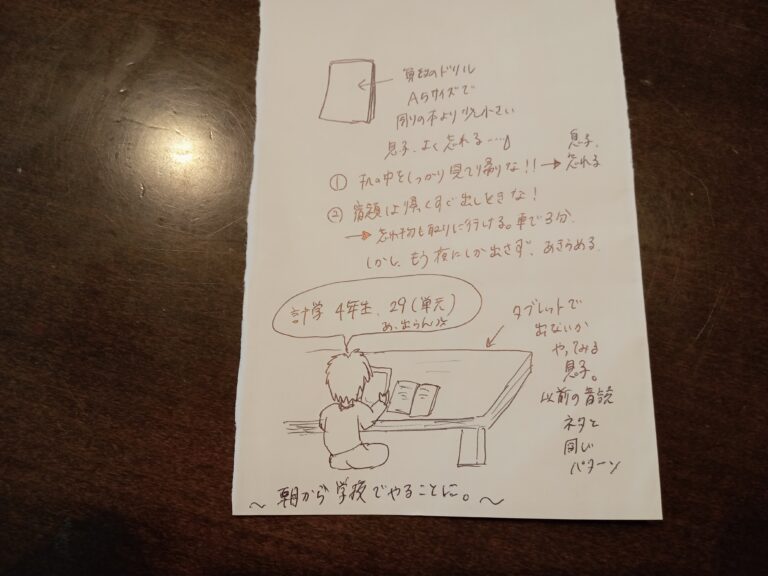 算数のドリル
A5サイズで
周りの本より少し小さい
息子、よく忘れる…。
① 机の中をしっかり見てり帰りな!! → 息子、
忘れる
② 宿題は早くすぐ出しときな!
→ 忘れ物も取りに行ける。車で3分。
しかし、もう夜にしか出さず、あきらめる。
計学 4年生、29(単元)
あ、出らん
タブレットで
出ないか
やってみる
息子。
以前の音読
ネタと
同じ
パターン
~ 朝から学校でやることに。~